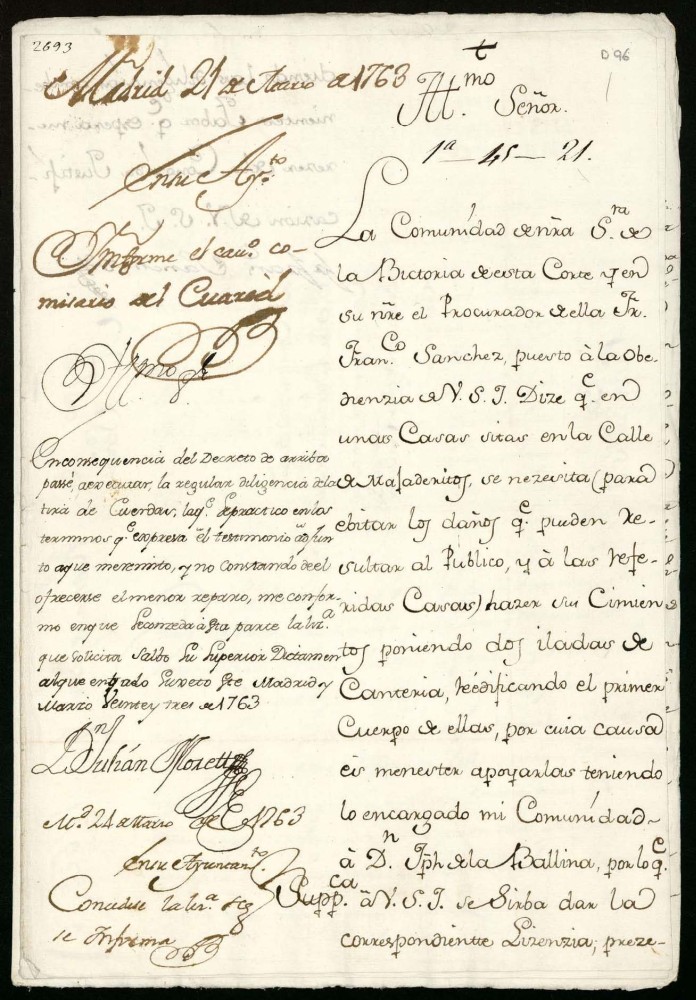 2693
D 96
Madrid 21 de Marzo de 1763
En su Ay.to
Informe el cav.o co-
misario del Quartel
Ill.mo S.r
En consequencia del Decreto de arriba
passé, a executar, la regular diligencia dela
tira de Cuerdas, laq.e se practico en los
terminos q.e expresa el testimonio adjun
to aque me remito, y no constando de el
ofrecerse el menor reparo, me confor-
mo en que se conzeda à esta parte la liz.a
que solicita salbo su superior Dictamen
al que en todo sujeto este Madrid y
Marzo Veinte y tres de 1763
D.n Julián Moret
M.d 24 de Marzo de 1763
En su Ayuntam.to
Concedese la liz.a
se Informa
Ill.mo Señor.
1a — 45 — 21.
La Comunidad de nrã S.ra de
la Bictoria de esta Corte y en
su nr̃e el Procurador de ella Fr.
Fran.co Sanchez, puesto à la Obe-
dienzia de V. S. I. Dize q.e en
unas Casas sitas en la Calle
de Majaderitos, se nezesita (para
ebitar los daños q.e pueden Re-
sultar al Publico, y à las refe-
ridas Casas) hazer sus Cimien
tos poniendo dos iladas de
Canteria, reedificando el primer
Cuerpo de ellas, por cuia causa
es menester apoyarlas teniendo
lo encargado mi Comunidad-
à D.n Jph de la Ballina, por lo q.e
Supp.ca à V. S. I. se Sirba dar la
correspondientte Lizenzia; preze-